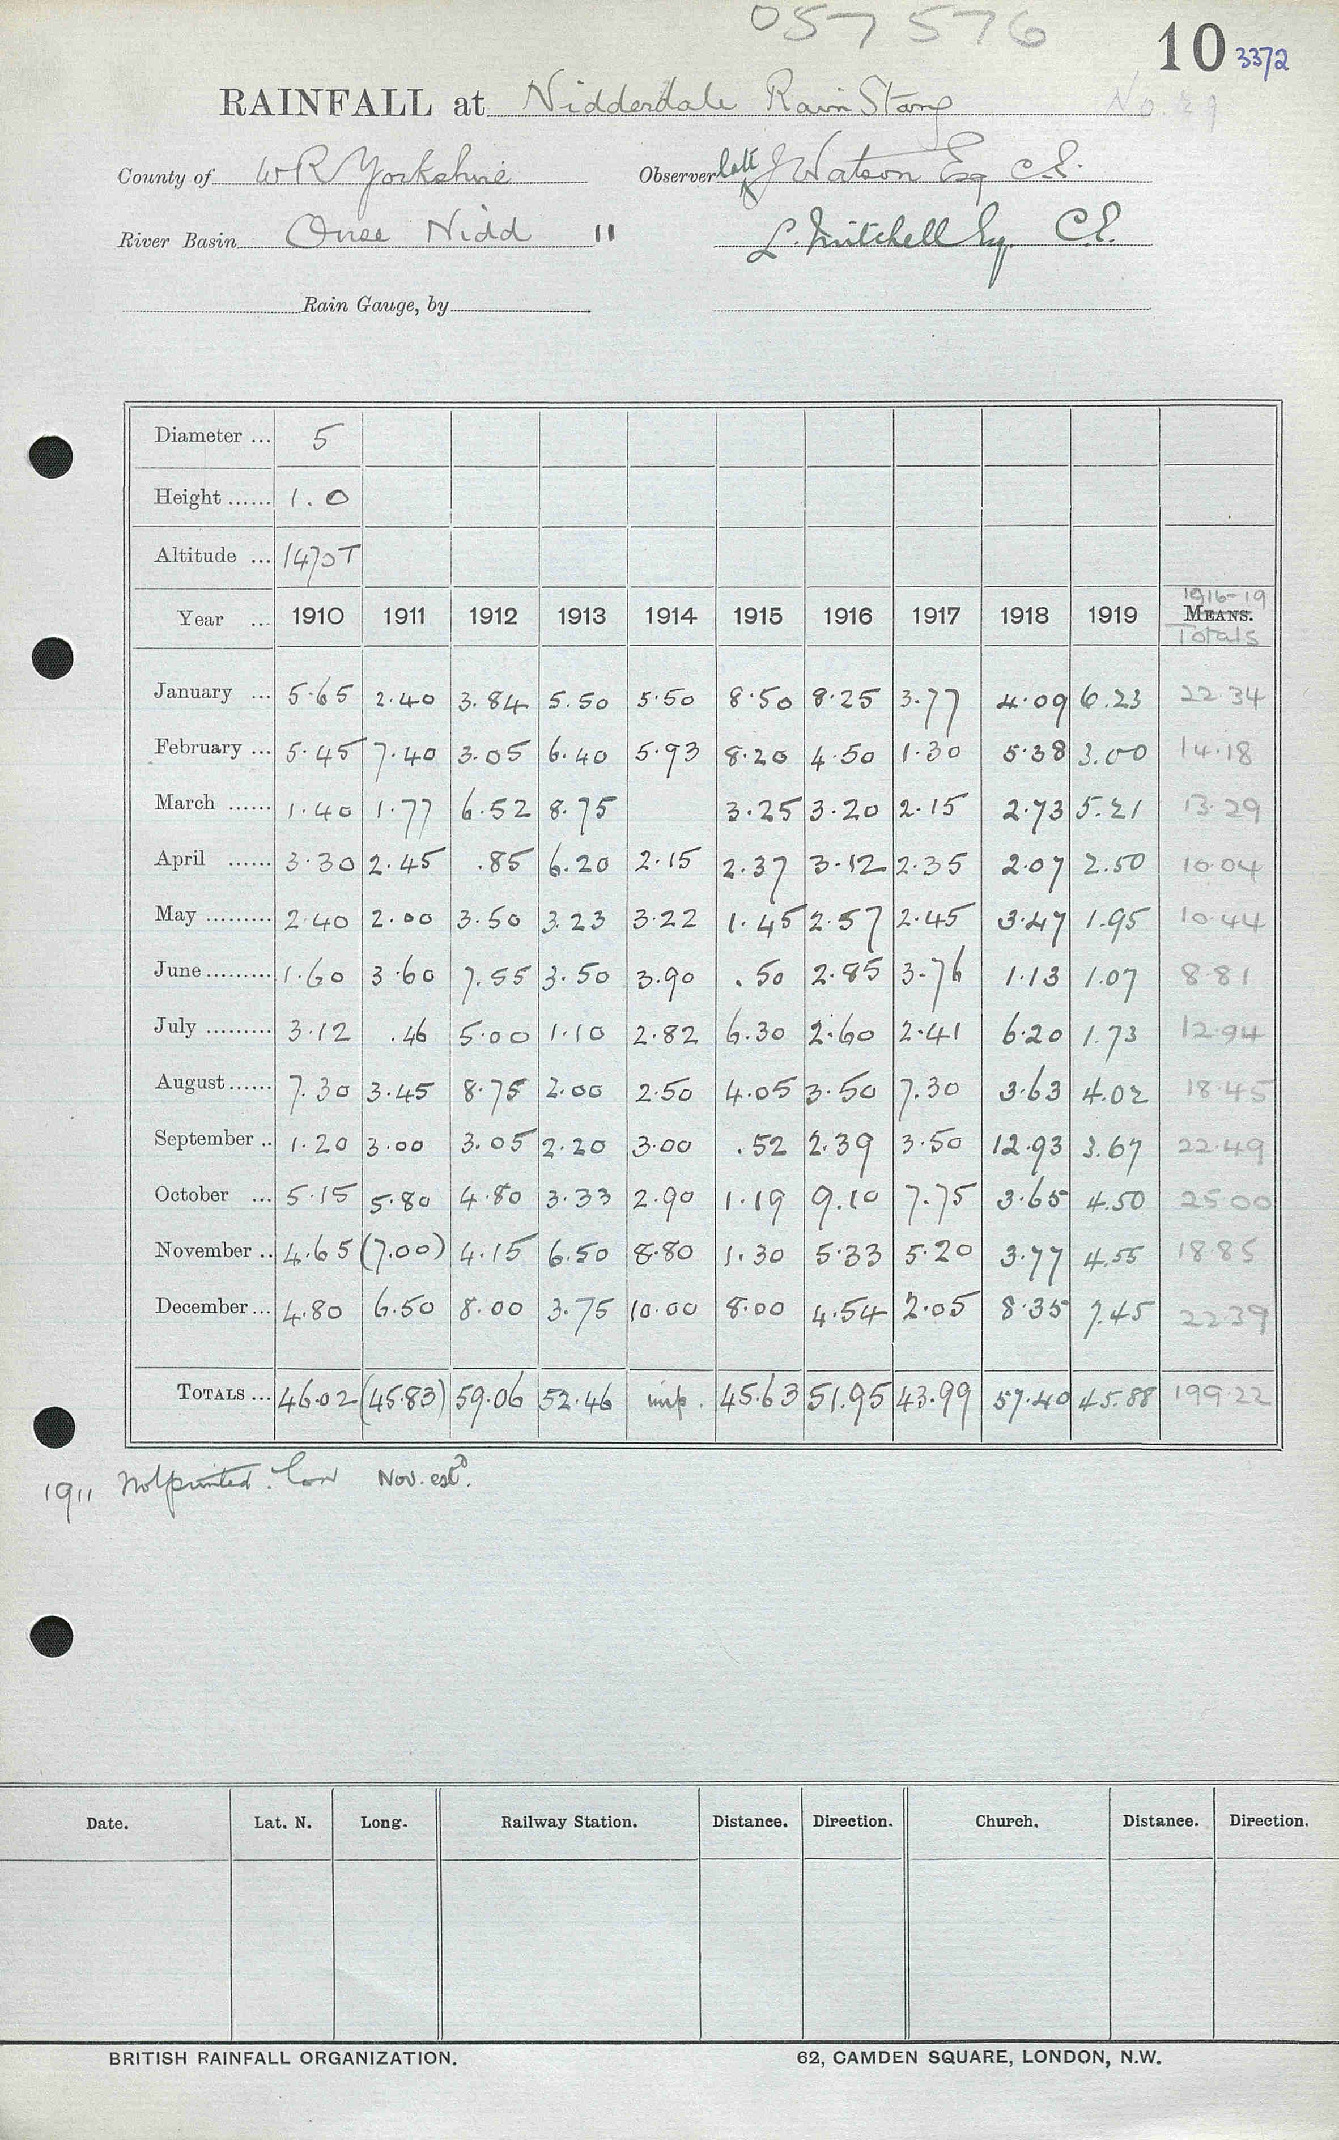 057576
10 3372
RAINFALL at Nidderdale Rain Stang No. 29
County of W R Yorkshire Observer late J Watson Esq C.E.
River Basin Ouse Nidd 11 L. Mitchell Esq. C.E.
Rain Gauge, by
Diameter ... 5
Height ...... 1.0
Altitude ... 1470T
1916-19
Year ... 1910 1911 1912 1913 1914 1915 1916 1917 1918 1919 MEANS.
Totals
January ... 5.65 2.40 3.84 5.50 5.50 8.50 8.25 3.77 4.09 6.23 22.34
February ... 5.45 7.40 3.05 6.40 5.93 8.20 4.50 1.30 5.38 3.00 14.18
March ...... 1.40 1.77 6.52 8.75 3.25 3.20 2.15 2.73 5.21 13.29
April ...... 3.30 2.45 .85 6.20 2.15 2.37 3.12 2.35 2.07 2.50 10.04
May ......... 2.40 2.00 3.50 3.23 3.22 1.45 2.57 2.45 3.47 1.95 10.44
June ......... 1.60 3.60 7.55 3.50 3.90 .50 2.85 3.76 1.13 1.07 8.81
July ......... 3.12 .46 5.00 1.10 2.82 6.30 2.60 2.41 6.20 1.73 12.94
August ...... 7.30 3.45 8.75 2.00 2.50 4.05 3.50 7.30 3.63 4.02 18.45
September .. 1.20 3.00 3.05 2.20 3.00 .52 2.39 3.50 12.93 3.67 22.49
October ... 5.15 5.80 4.80 3.33 2.90 1.19 9.10 7.75 3.65 4.50 25.00
November .. 4.65 (7.00) 4.15 6.50 8.80 1.30 5.33 5.20 3.77 4.55 18.85
December ... 4.80 6.50 8.00 3.75 10.00 8.00 4.54 2.05 8.35 7.45 22.39
TOTALS ... 46.02 (45.83) 59.06 52.46 imp. 45.63 51.95 43.99 57.40 45.88 199.22
1911 Not printed. Low Nov. estd.
Date. Lat. N. Long. Railway Station. Distance. Direction. Church. Distance. Direction.
BRITISH RAINFALL ORGANIZATION. 62, CAMDEN SQUARE, LONDON, N.W.